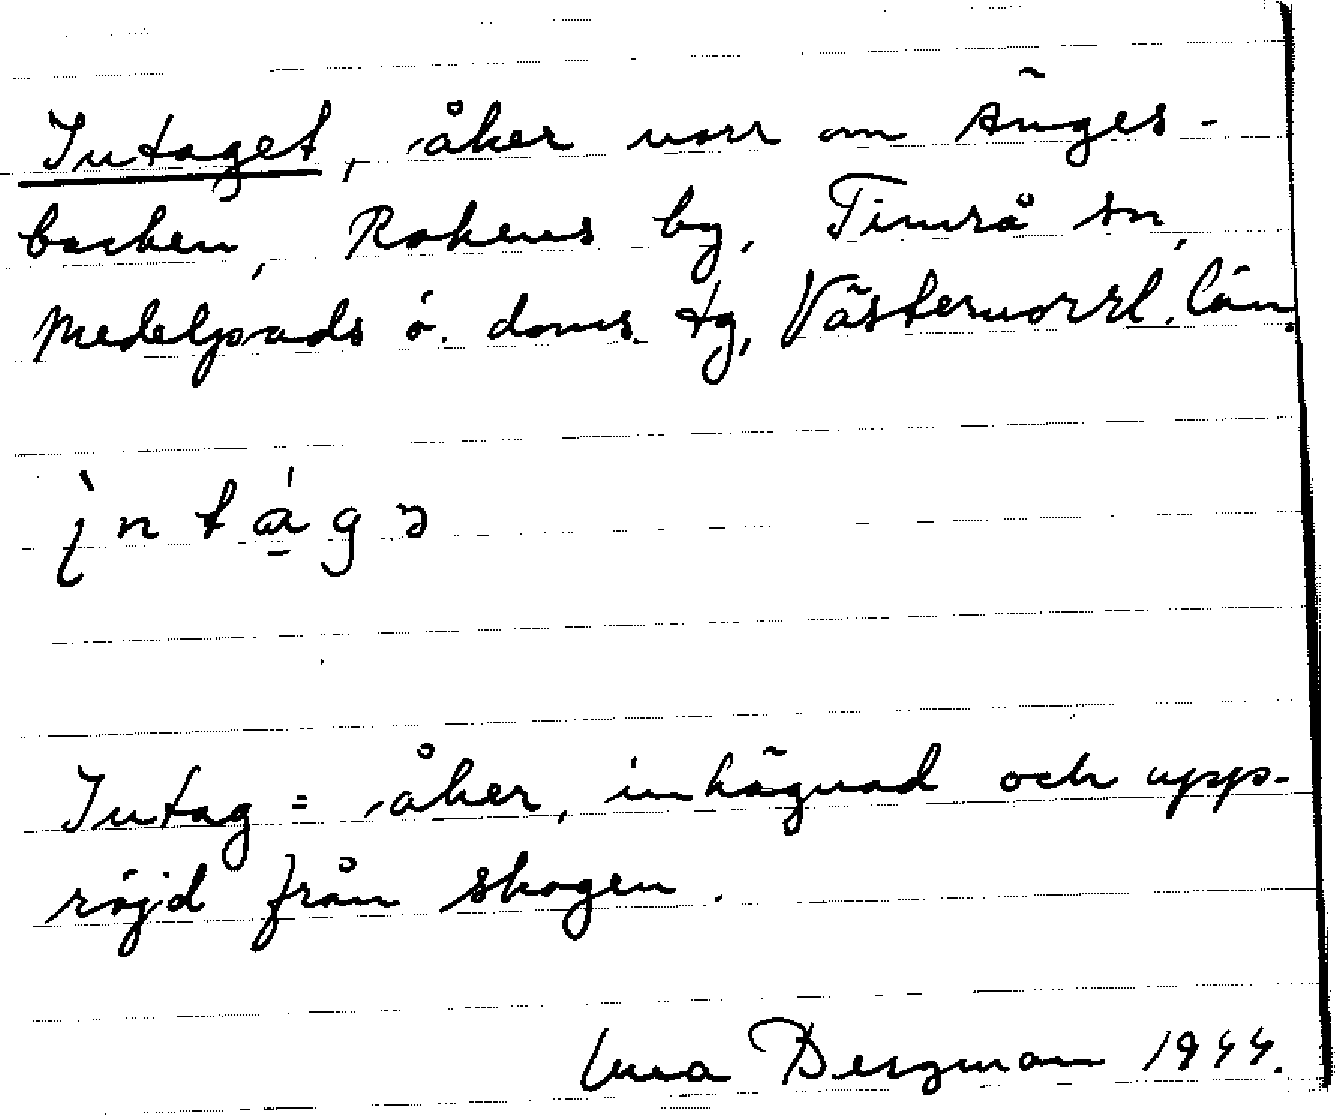 Intaget, åker norr om Änges-
backen, Rokens by, Timrå sn,
Medelpads ö. doms. tg, Västernorrl. län.
i̯ntágə
Intag = åker, inhägnad och upp-
röjd från skogen.
Bergman 1944.